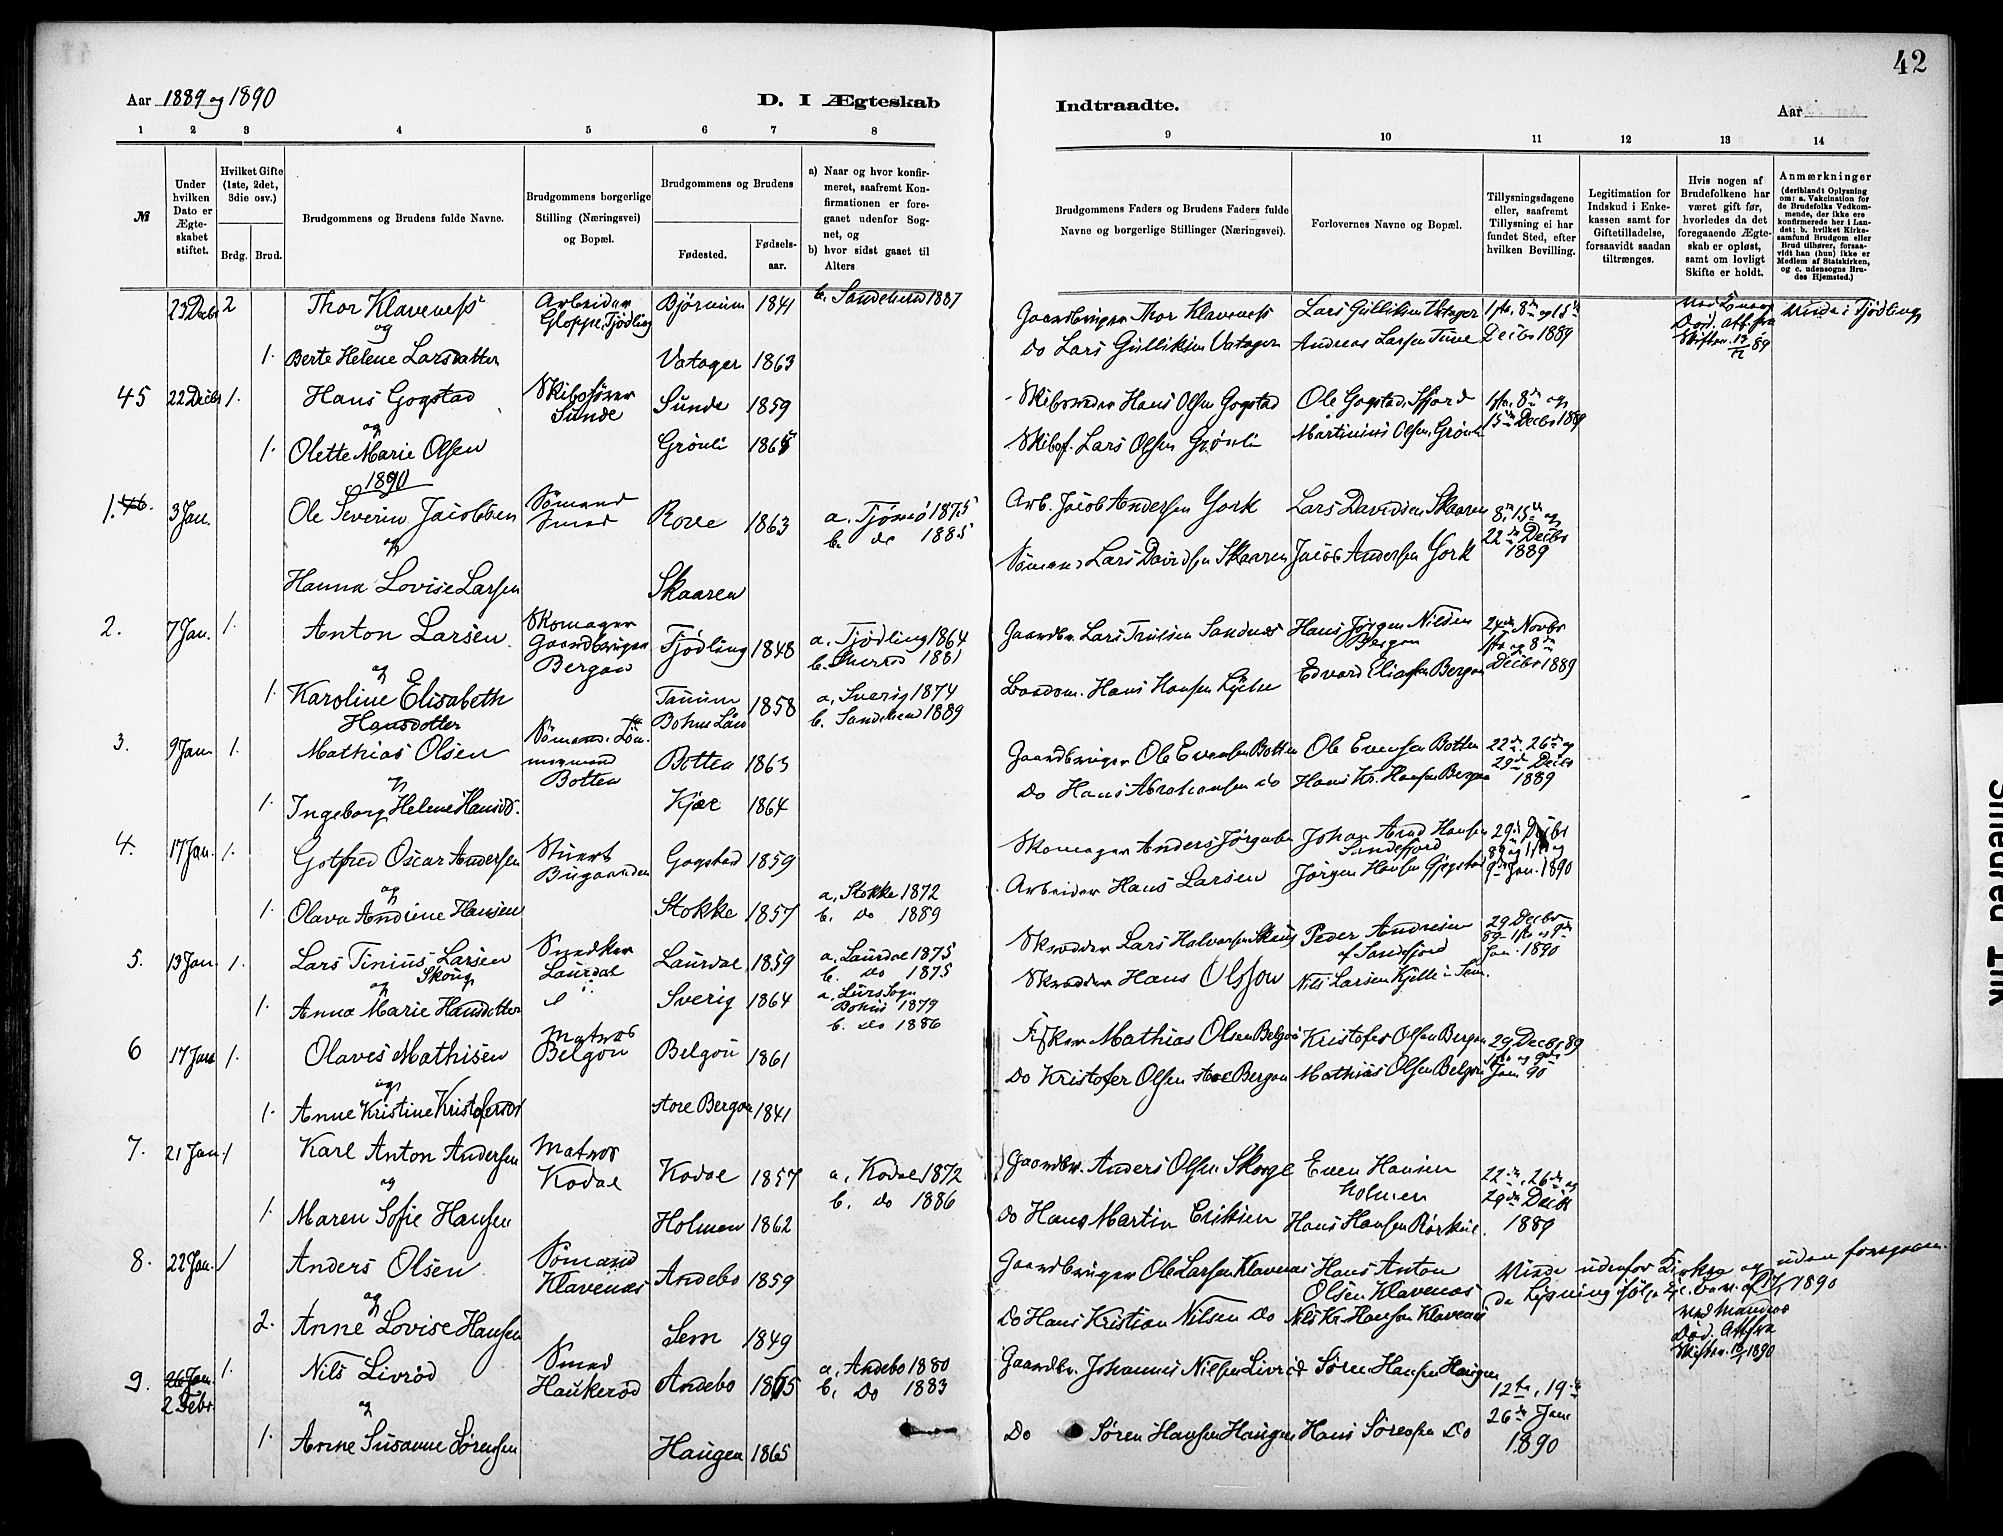 42
Aar 1889 og 1890
D. I Ægteskab
Indtraadte.
Aar
1 2 3 4 5 6 7 8
9 10 11 12 13 14
№
Under hvilken Dato er Ægteskabet stiftet.
Hvilket Gifte (1ste, 2det, 3die osv.)
Brdg. Brud.
Brudgommens og Brudens fulde Navne.
Brudgommens borgerlige Stilling (Næringsvei) og Bopæl.
Brudgommens og Brudens
Fødested. Fødselsaar.
a) Naar og hvor konfirmeret, saafremt Konfirmationen er foregaaet udenfor Sognet, og
b) hvor sidst gaaet til Alters
Brudgommens Faders og Brudens Faders fulde Navne og borgerlige Stillinger (Næringsvei).
Forlovernes Navne og Bopæl.
Tillysningsdagene eller, saafremt Tillysning ei har fundet Sted, efter hvilken Bevilling.
Legitimation for Indskud i Enkekassen samt for Giftetilladelse, forsaavidt saadan tiltrænges.
Hvis nogen af Brudefolkene har været gift før, hvorledes da det foregaaende Ægteskab er opløst, samt om lovligt Skifte er holdt.
Anmærkninger
(deriblandt Oplysning om: a. Vakcination for de Brudefolks Vedkommende, der ikke ere konfirmerede her i Landet; b. hvilket Kirkesamfund Brudgom eller Brud tilhører, forsaavidt han (hun) ikke er Medlem af Statskirken, og c. udensogns Brudes Hjemsted.)
23 Decbr 2 Thor Klaveness Arbeider Bjørnum 1841 b. Sandeherred 1887 Gaardbruger Thor Klaveness Lars Gulliksen Vatager 1ste, 8de og 15de
og Gloppe, Tjødling
1. Berte Helene Larsdatter Vatager 1863 Do Lars Gulliksen Vatager Andreas Larsen Tuue Decbr 1889
Død. Att. fra
Skiftr. 89
45 22 Decbr 1. Hans Gogstad Skibsfører Sunde 1859 Skibsreder Hans Olsen Gogstad Ole Gogstad, Sffjord 1ste, 8de og
og Sunde 15de Decbr 1889
1. Olette Marie Olsen Grønli 1865 Skibsf. Lars Olsen Grønli Martinius Olsen, Grønli
1890
1. 46. 3 Jan. Ole Severin Jacobsen Sømand Rove 1863 a. Tjømø 1875 Arb. Jacob Andersen York Lars Davidsen Skaaren 8de, 15de og
og Smed b. do 1885 22de Decbr
Hanna Lovise Larsen Skaaren Sømand Lars Davidsen Skaaren Jacob Andersen York 1889
2. 7 Jan. 1. Anton Larsen Skomager Tjødling 1848 a. Tjødling 1864 Gaardbr. Lars Trulsen Sandnes Hans Jørgen Nilsen 24de Novbr
og Gaardbruger b. Sherred 1881 Bergan 1ste og 8de
Bergan
1. Karoline Elisabeth Tanum 1858 a. Sverig 1874 Baadsm. Hans Hansen Edvard Eliasen Bergan Decbr 1889
Hansdotter Bohus Län b. Sandeherred 1889
3. 9 Jan. 1. Mathias Olsen Sømand. Botten 1863 Gaardbruger Ole Evensen Botten Ole Evensen Botten 22de, 26de og
og Botten 29de Decbr
1. Ingeborg Helene Hansd. Kjær 1864 Do Hans Abrahamsen do Hans Kr. Hansen Bergan 1889
4. 17 Jan. 1. Gotfred Oscar Andersen Stuert Gogstad 1859 Skomager Anders Jørgensen Johan Arnd Hansen 29de Decbr
og Bugaarden Sandefjord 89 og 1ste og
1. Olava Andrine Hansen Stokke 1857 a. Stokke 1872 Arbeider Hans Larsen Jørgen Hansen Gogstad Jan. 1890
b. Do 1889
5. 13 Jan. 1. Lars Tinius Larsen Snedker Laurdal 1859 a. Laurdal 1875 Skrædder Lars Halvorsen Skoug Peder Andresen 29 Decbr
Skoug Laurdal b. do 1875 af Sandefjord 89 1ste og
og
1. Anna Marie Hansdotter Sverig 1864 a. Lurs Sogn Skrædder Hans Olsson Nils Larsen Kjelle i Sem. Jan. 1890
Bohus 1879
b. Do 1886
6 17 Jan 1. Olaves Mathisen Matros Belgau 1861 Fisker Mathias Olsen Belgau Kristofer Olsen Bergan 29 Decbr 89
og Belgau 1ste og
1. Anne Kristine Kristofersd store Bergan 1841 Do Kristofer Olsen store Bergan Mathias Olsen Belgau Jan 90
7. 21 Jan. 1 Karl Anton Andersen Matros Kodal 1857 a. Kodal 1872 Gaardbr. Anders Olsen Skorge Even Hansen 22de, 26de og
og Kodal b. Do 1886 Holmen 29de Decbr
1. Maren Sofie Hansen Holmen 1862 Do Hans Martin Eriksen Hans Hansen Rørkul. 1889
8. 22 Jan. 1 Anders Olsen Sømand Andebo 1859 Gaardbruger Ole Larsen Klavenæs Hans Anton Viede udenfor Kirken og uden foregaaen-
og Klavenæs Olsen Klavenæs de Lysning ifølge Kgl. 1890
2. Anne Lovise Hansen Sem 1849 Do Hans Kristian Nilsen Do Nils Kr. Hansen Klavenæs
ved Mandens
Død. Att. fra
Skiftr. 1890
9. 26 Jan. 1. Nils Livrød Smed Andebo 1865 a. Andebo 1880 Gaardbr. Johannes Nilsen Livrød Søren Hansen Haugen
2 Febr. og Haukerød b. Do 1883 12te, 19de
26de Jan
1. Anne Susanne Sørensen Haugen 1865 Do Søren Hansen Haugen Hans Sørensen Do 1890